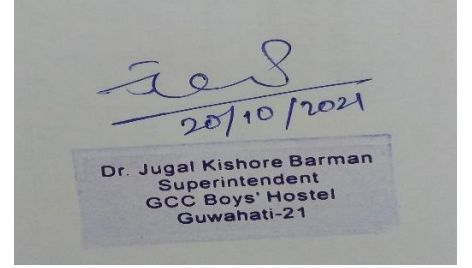 20/10/2021
Dr. Jugal Kishore Barman
Superintendent
GCC Boys' Hostel
Guwahati-21